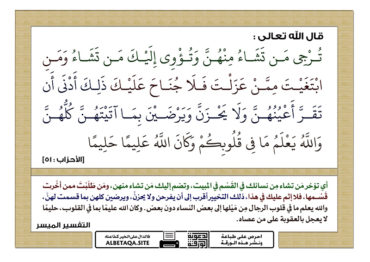 قال الله تعالى :
تُرْجِى مَن تَشَاءُ مِنْهُنَّ وَتُـْٔوِى إِلَيْكَ مَن تَشَاءُ وَمَنِ
ابْتَغَيْتَ مِمَّنْ عَزَلْتَ فَلَا جُنَاحَ عَلَيْكَ ذَلِكَ أَدْنَى أَن
تَقَرَّ أَعْيُنُهُنَّ وَلَا يَحْزَنَّ وَيَرْضَيْنَ بِمَا آتَيْتَهُنَّ كُلُّهُنَّ
وَاللَّهُ يَعْلَمُ مَا فِى قُلُوبِكُمْ وَكَانَ اللَّهُ عَلِيمًا حَلِيمًا
[الأحزاب : ٥١]
أي تؤخر مَن تشاء مِن نسائك في القَسْم في المبيت، وتضم إليك مَن تشاء منهن، ومَن طَلَبْتَ ممن أخَّرت
قَسْمها، فلا إثم عليك في هذا، ذلك التخيير أقرب إلى أن يفرحن ولا يحزنَّ، ويرضين كلهن بما قسمت لهنَّ،
والله يعلم ما في قلوب الرجال مِن مَيْلها إلى بعض النساء دون بعض. وكان الله عليمًا بما في القلوب، حليمًا
لا يعجل بالعقوبة على من عصاه.
التفسير الميسر
احرص على طباعة
ونشر هذه الورقة
الدال على الخير كفاعله
ALBETAQA.SITE